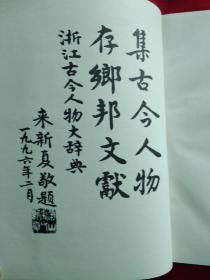 集古今人物
存鄉邦文獻
浙江古今人物大辞典
来新夏敬題
一九九六年二月